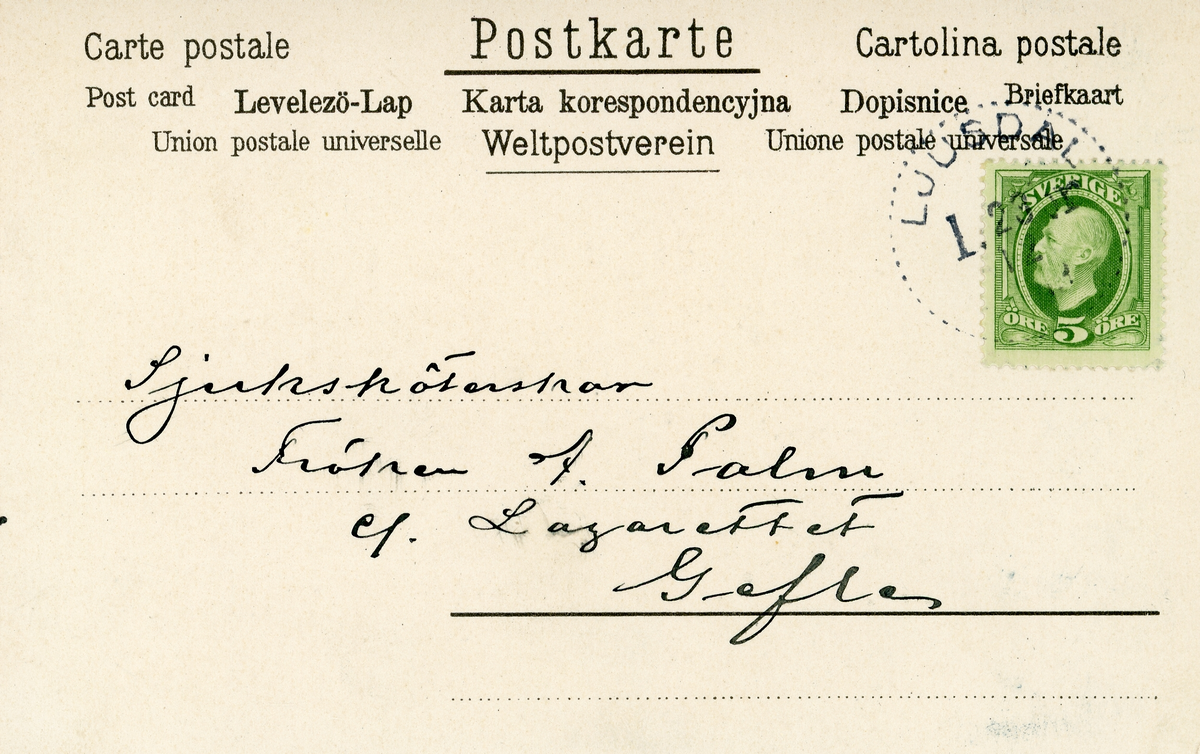 Carte postale Postkarte Cartolina postale
Post card Levelezö-Lap Karta korespondencyjna Dopisnice Briefkaart
Union postale universelle Weltpostverein Unione postale universale
LJUSDAL
SVERIGE
ÖRE 5 ÖRE
Sjuksköterskan
Fröken A. Palm
Lazarettet
Gefle